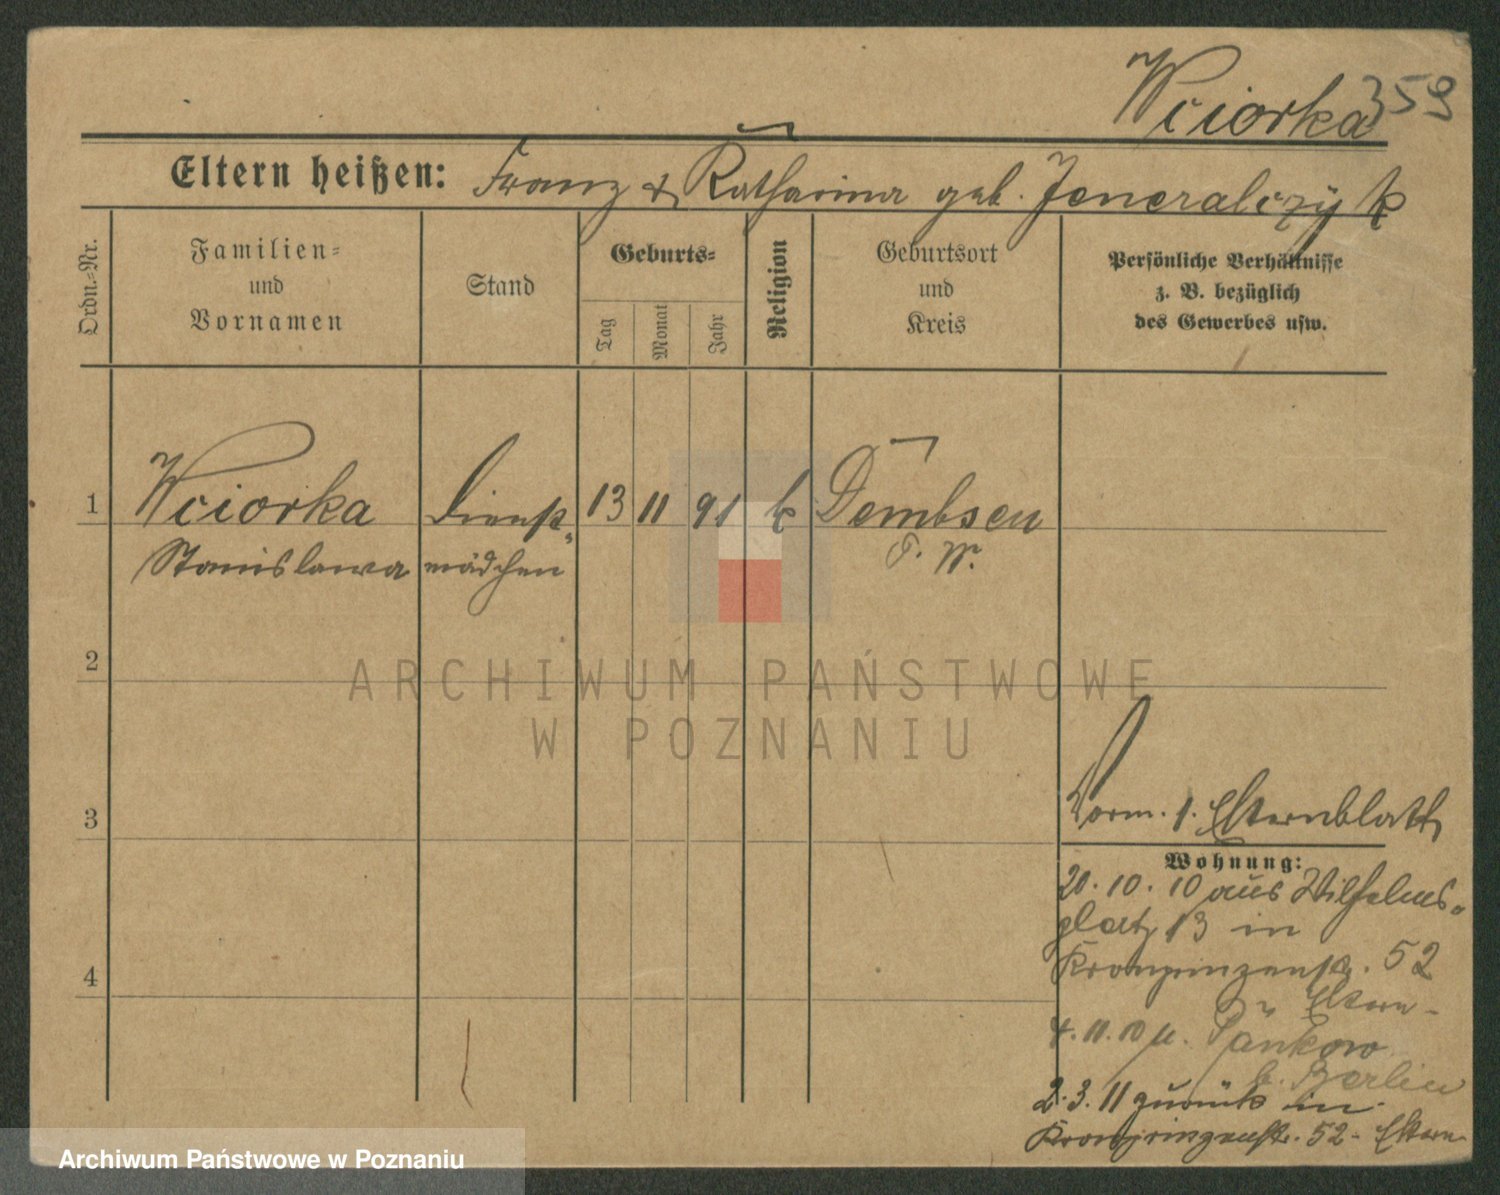 Wciorka 359
Eltern heißen: Franz & Katharina geb. Jeneralczyk
Ordn.-Nr.
Familien-
und
Vornamen
Stand
Geburts-
Tag
Monat
Jahr
Religion
Geburtsort
und
Kreis
Persönliche Verhältnisse
z. B. bezüglich
des Gewerbes usw.
1 Wciorka Dienst- 13 11 91 k Dembsen
Stanislawa mädchen P. W.
2
ARCHIWUM PAŃSTWOWE
W POZNANIU
3
Vorm. s. Elternblatt
Wohnung:
20. 10. 10 aus Wilhelms-
platz 13 in
Kronprinzenstr. 52
Eltern
4. 11. 10 n. Pankow
b. Berlin
4
2. 3. 11 zurück in
Kronprinzenstr. 52 - Eltern
Archiwum Państwowe w Poznaniu